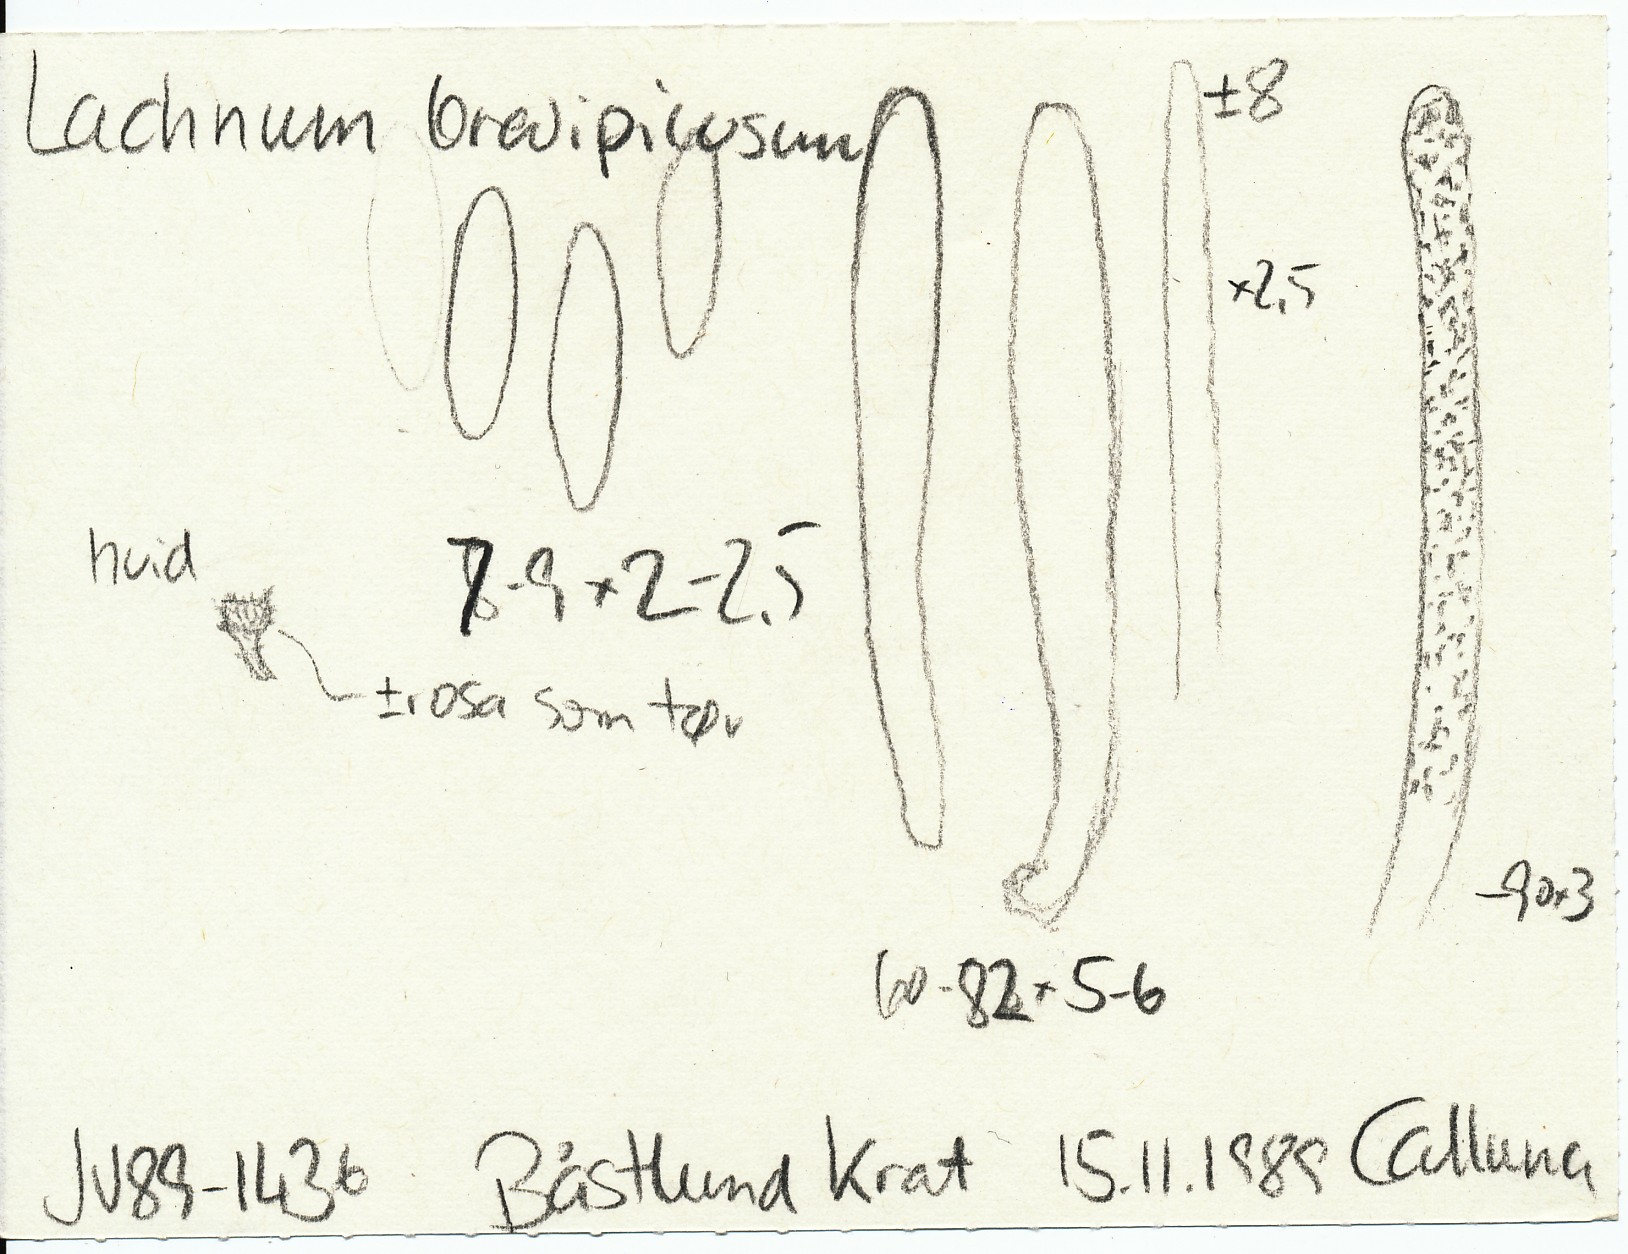 Lachnum brevipilosum
±8
×2,5
hvid
7-9 × 2-2,5
±rosa som tør
-90×3
60-82 × 5-6
JV89-1436 Båstlund Krat 15.11.1989 Calluna